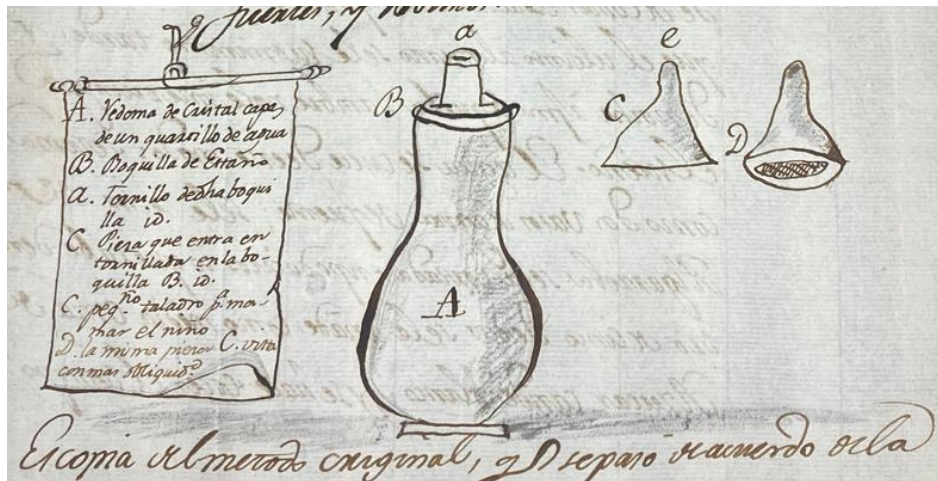 fuentes, y
a
B
e
C
D
A
A. Vedoma de Cristal capaz
de un quartillo de agua
B. Boquilla de Estaño
a. Tornillo de dha boqui
lla id.
C. Pieza que entra en
tornillada en la bo-
quilla B. id.
C. peqño taladro pa. ma-
mar el niño
D. la misma pieza C. vista
con mas obliquidd
Es copia del metodo original, q se pasó de acuerdo de la